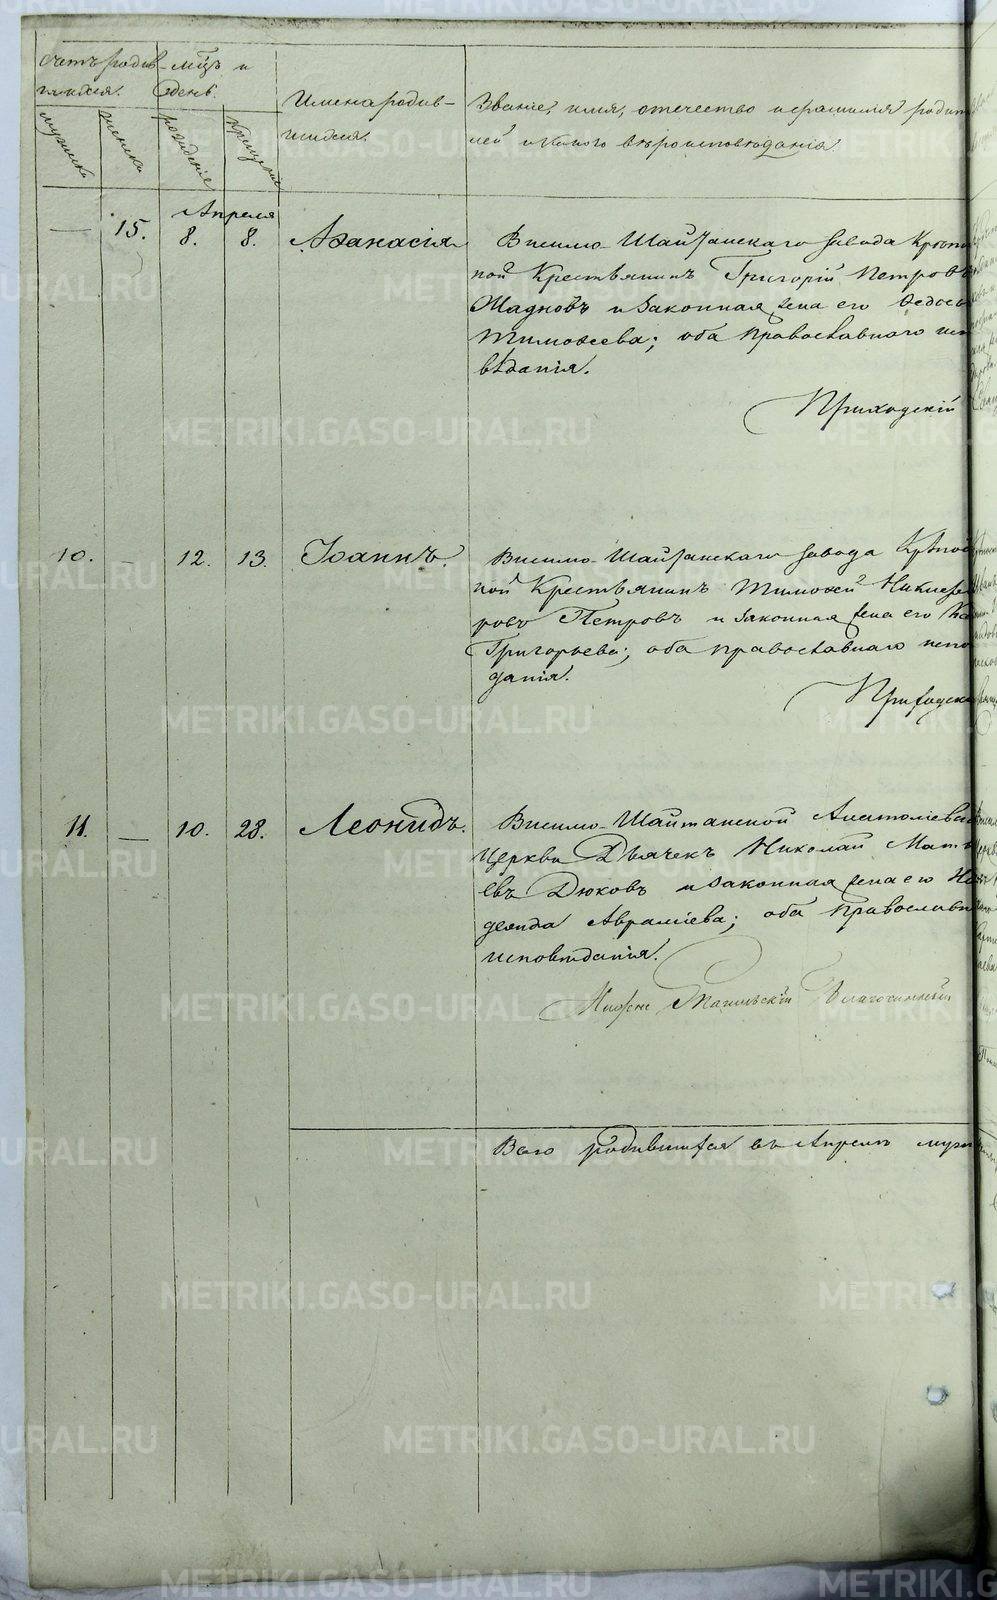 Счетъ родив- мцъ и
шихся. день.
мужеска
женска
рожденіе
крещеніе
Имена родив-
шихся.
Званіе, имя, отчество и фамилія родит
лей и какого вѣроисповѣданія.
Апреля
— 15. 8. 8. Аѳанасія
Висимо-Шайтанскаго завода Крѣпо
ной Крестьянинъ Григорій Петровъ
Жадновъ и законная жена его Ѳедось
Тимоѳеева; оба православнаго исп
вѣданія.
Приходскій
10. — 12. 13. Іоаннъ.
Висимо-Шайтанскаго завода Крѣпос
ной Крестьянинъ Тимоѳей Никифо
ровъ Петровъ и законная жена его
Григорьева; оба православнаго испо
данія.
Приходскі
11. — 10. 28. Леонидъ.
Висимо-Шайтанской Анатоліевс
Церкви Дьячекъ Николай Матѳ
евъ Дюковъ и законная жена его На
дежда Авраміева; оба православн
исповѣданія.
Нижне Тагильскій Благочинный
Всего родившихся въ Апрелѣ муж
METRIKI.GASO-URAL.RU